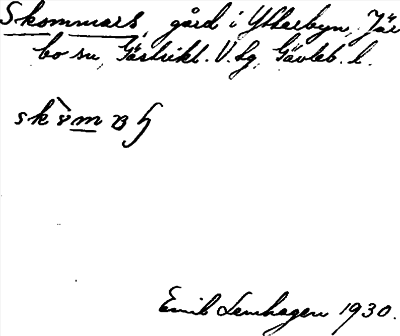 Skommars, gård i Ytterbyn, Jär
bo sn, Gästrikl. V. tg, Gävleb. l.
Emil Lenhagen 1930.